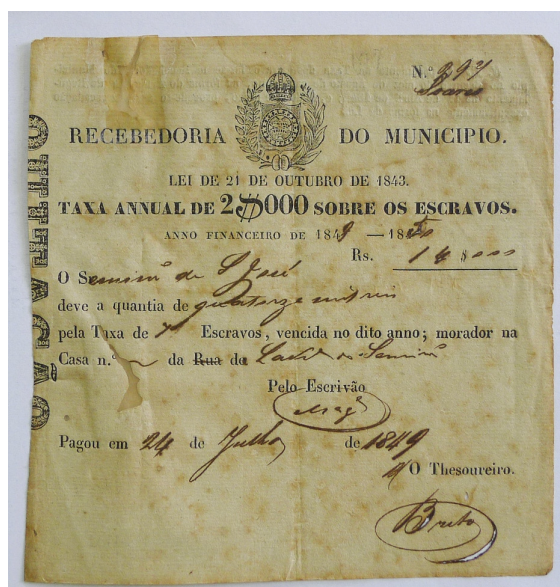 N.º 297
Soares
RECEBEDORIA DO MUNICIPIO.
LEI DE 21 DE OUTUBRO DE 1843.
TAXA ANNUAL DE 2$000 SOBRE OS ESCRAVOS.
ANNO FINANCEIRO DE 1849 — 1850
Rs. 14$000
O Seminr.º de S José
deve a quantia de quatorze mil reis
pela Taxa de 7 Escravos, vencida no dito anno; morador na
Casa n.º da Rua do
Pelo Escrivão
Pagou em 24 de Julho de 1849
O Thesoureiro.
Brito